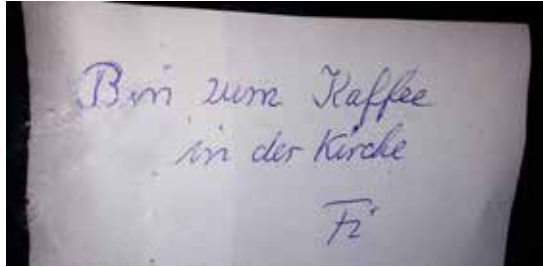 Bin zum Kaffee
in der Kirche
Fi